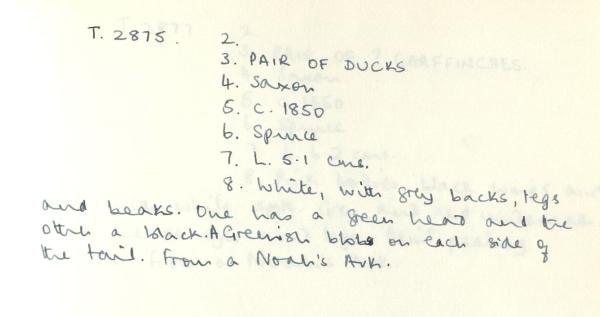 T. 2875. 2.
3. PAIR OF DUCKS
4. Saxon
5. C. 1850
6. Spruce
7. L. 5.1 cms.
8. White, with grey backs, legs
and beaks. One has a green head and the
other a black. A Greenish blobs on each side of
the tail. From a Noah's Ark.